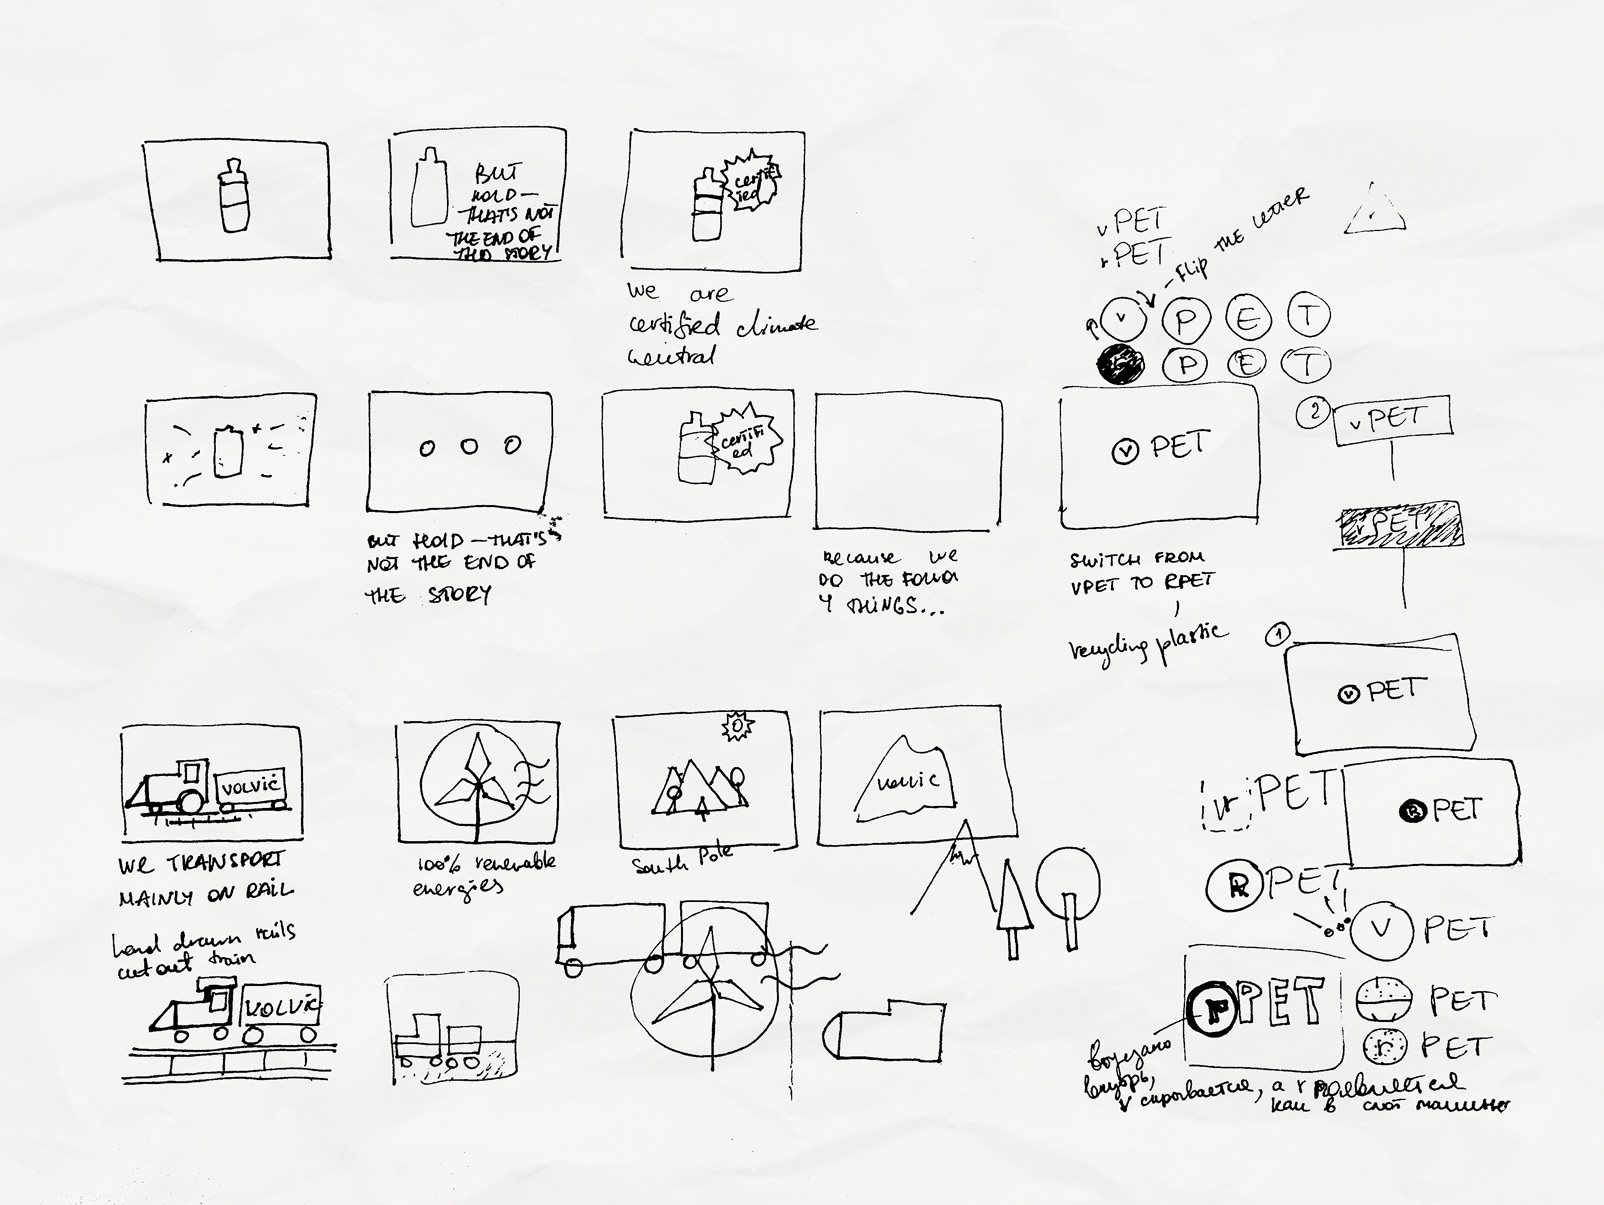 BUT
HOLD —
THAT'S NOT
THE END OF
THE STORY
certif
ied
we are
certified climate
neutral
vPET
rPET
FLIP THE LETTER
v
V P E T
P E T
BUT HOLD — THAT'S
NOT THE END OF
THE STORY
certifi
ed
Because we
DO THE
4 THINGS...
V PET
SWITCH FROM
VPET TO RPET
recycling plastic
2
vPET
vPET
1
V PET
VOLVIC
WE TRANSPORT
MAINLY ON RAIL
hand drawn rails
cut out train
VOLVIC
100% renewable
energies
South Pole
VOLVIC
PET
R PET
R PET
V PET
r PET
PET
r PET
врезано
внутрь,
v скрывается, а r появляется
как в слот машине